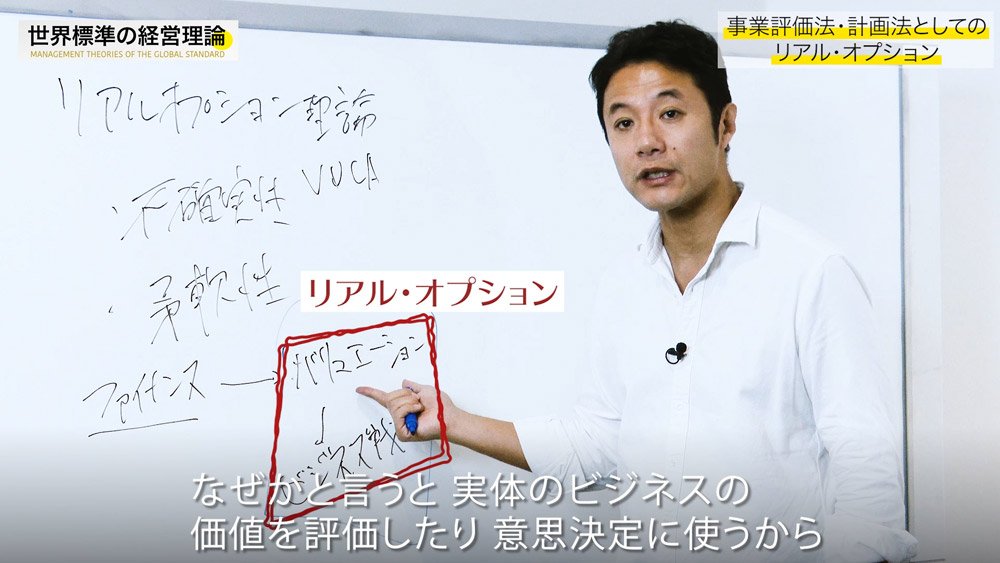 世界標準の経営理論
MANAGEMENT THEORIES OF THE GLOBAL STANDARD
事業評価法・計画法としての
リアル・オプション
リアルオプション理論
・不確実性 VUCA
・柔軟性
リアル・オプション
ファイナンス → バリュエーション
↓
ビジネス戦
なぜかと言うと 実体のビジネスの
価値を評価したり 意思決定に使うから